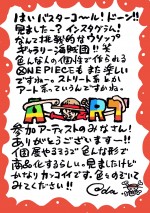 はいバスターコ〜ル!ドーン!!
見ました〜?インスタグラム!
なんて挑戦的なウソップ
ギャラリー海賊団!!笑
色んな人の個性で作られる
ONE PIECEもまた楽しい
ですねー。ストリート系とか
アート系っていうんですかね。
ART
参加アーティストのみなさん!
ありがとうございますー!!
個展やるそうで色んな形で
商品化するらしい。見ましたけど
かなりカッコイイです。色のぞいて
みてください!!
Oda